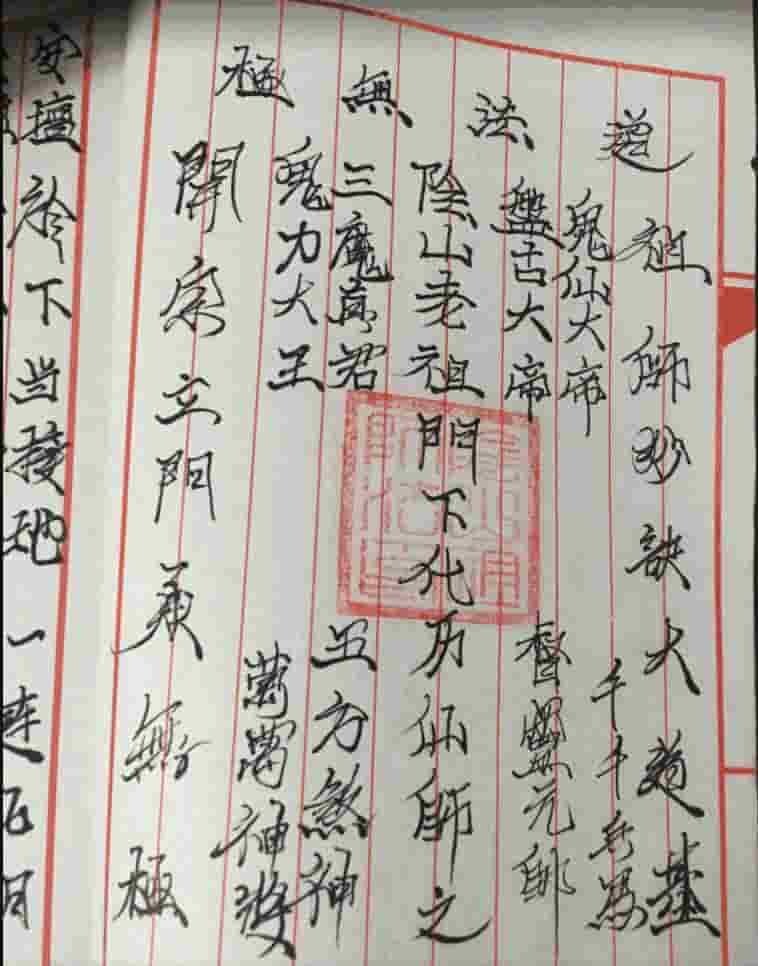 道法無極
祖師妙訣大道基
鬼仙大帝 千千兵馬
盤古大帝 元帥
陰山老祖門下化历仙師之
三魔真君 五方煞神
鬼力大王 萬萬神將
開宗立門 無極
安壇 下当接地 一連 月